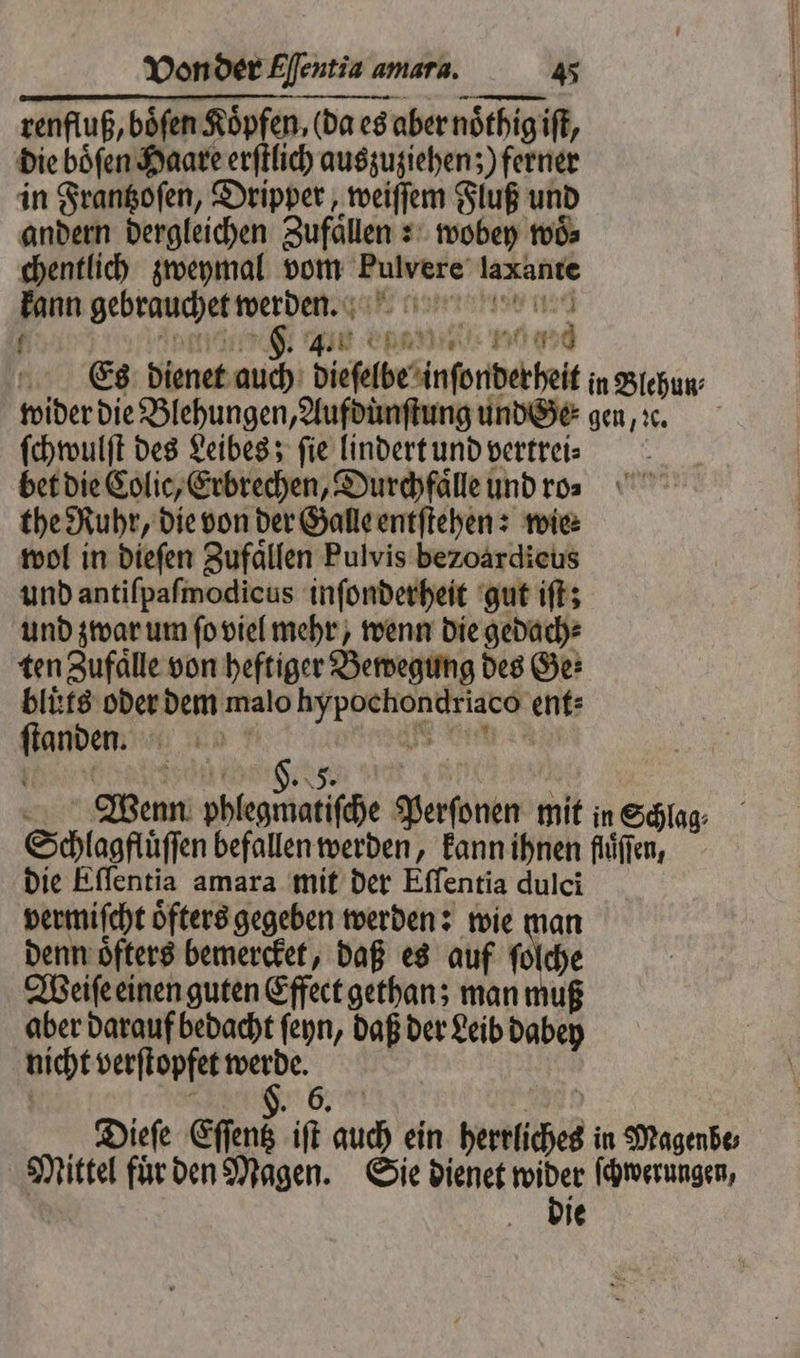 Von der Eſſentia amara. 45
renfluß, boͤſen Koͤpfen, (da es aber noͤthig iſt,
die boͤſen Haare erſtlich auszuziehen;) ferner
in Frantzoſen, Dripper, weiſſem Fluß und
andern dergleichen Zufaͤllen: wobey woͤ-
chentlich zweymal vom Pulvere laxante
kann gebrauchet werden.
§. 4.
Es dienet auch dieſelbe inſonderheit in Blehun-
wider die Blehungen, Aufduͤnſtung und Ge- gen, ꝛc.
ſchwulſt des Leibes; ſie lindert und vertrei-
bet die Colic, Erbrechen, Durchfaͤlle und ro-
the Ruhr, die von der Galle entſtehen: wie-
wol in dieſen Zufaͤllen Pulvis bezoardicus
und antiſpaſmodicus inſonderheit gut iſt;
und zwar um ſo viel mehr, wenn die gedach-
ten Zufaͤlle von heftiger Bewegung des Ge-
bluͤts oder dem malo hypochondriaco ent-
ſtanden.
§. 5.
Wenn phlegmatiſche Perſonen mit in Schlag-
Schlagfluͤſſen befallen werden, kann ihnen fluͤſſen,
die Eſſentia amara mit der Eſſentia dulci
vermiſcht oͤfters gegeben werden: wie man
denn oͤfters bemercket, daß es auf ſolche
Weiſe einen guten Effect gethan; man muß
aber darauf bedacht ſeyn, daß der Leib dabey
nicht verſtopfet werde.
§. 6.
Dieſe Eſſentz iſt auch ein herrliches in Magenbe-
Mittel fuͤr den Magen. Sie dienet wider ſchwerungen,
die